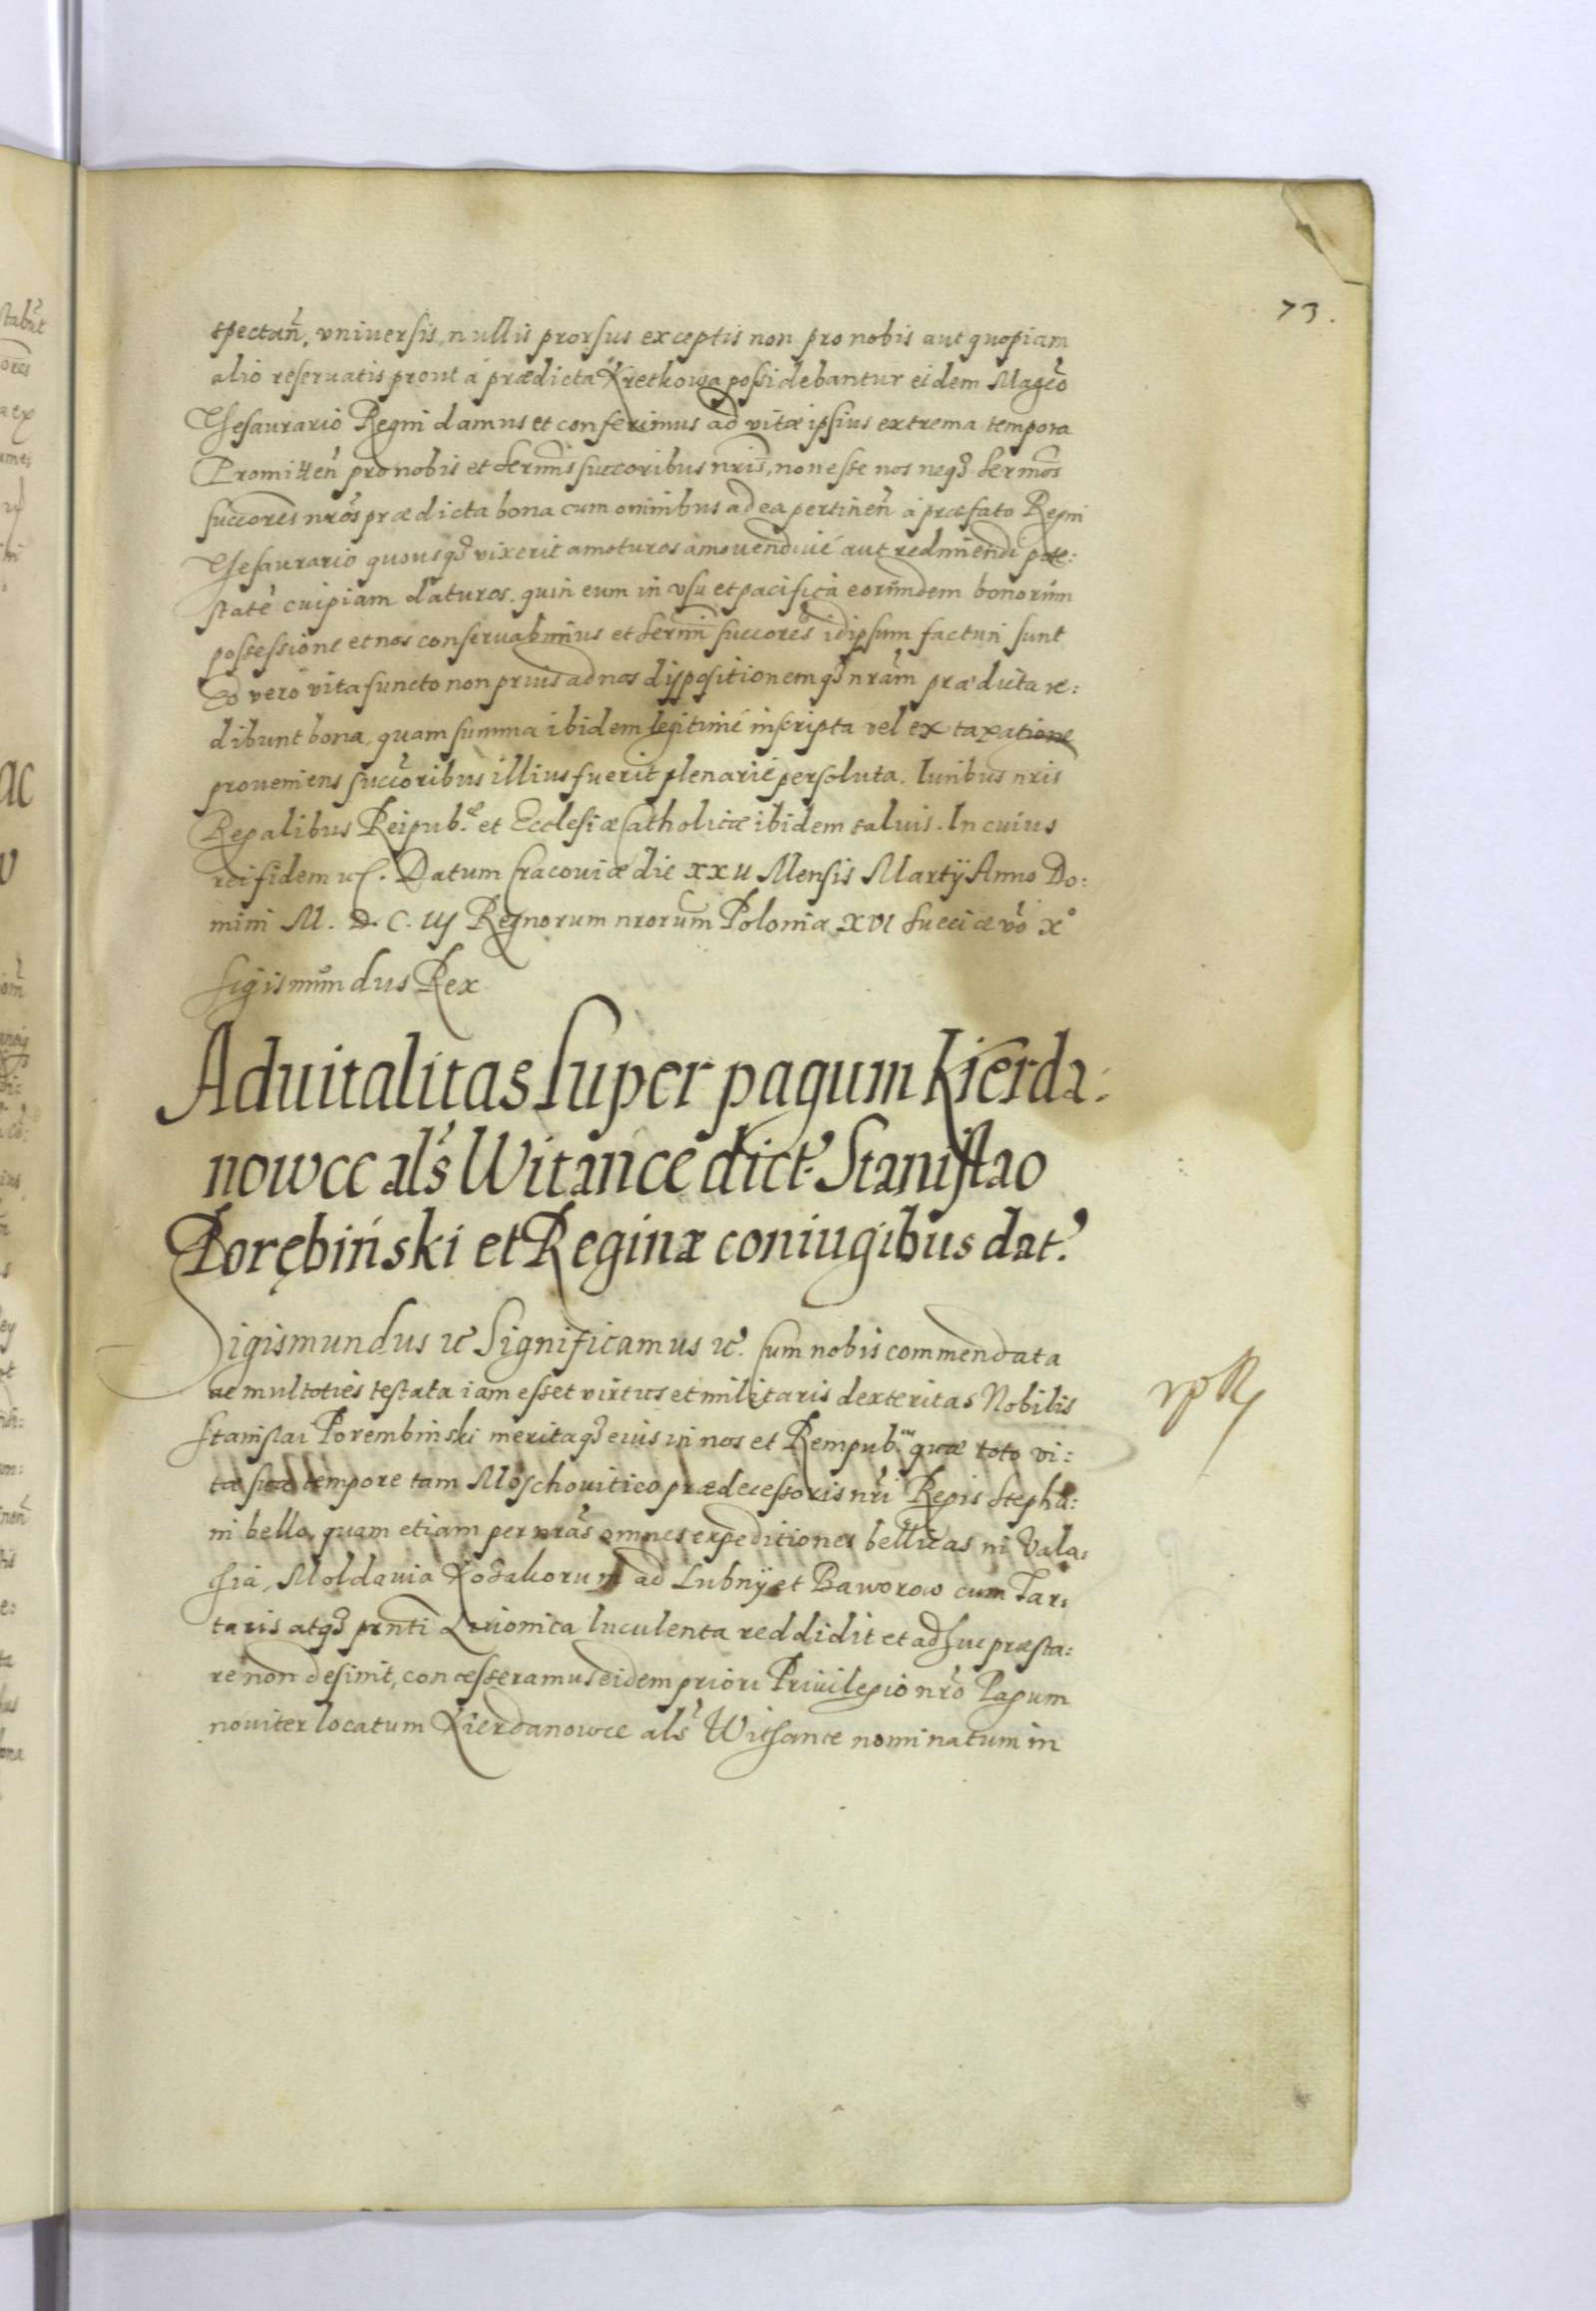 73.
spectan̄, vniuersis, nullis prorsus exceptis non pro nobis aut quopiam
alio reseruatis prout á prædicta Kretkowa possidebantur eidem Magcō
Thesaurario Regni damus et conferimus ad vitæ ipsius extrema tempora
Promitten̄ pro nobis et Sermīs succoribus nrīs, non esse nos neqꝫ Sermōs
succores nrōs prædicta bona cum omnibus ad ea pertinen̄ á præfato Regni
Thesaurario quousqꝫ vixerit amoturos amouendiué aut redimendi pote:
statē cuipiam daturos. quin eum in vsu et pacifica eorūmdem bonorūm
possessione et nos conseruabimus et Sermī succores idipsum facturi sunt
Eo vero vita functo non prius ad nos dispositionemqꝫ nrām prædicta re:
dibunt bona, quam summa ibidem legitimé inscripta vel ex taxatione
proueniens succoribus illius fuerit plenarié persoluta. Iuribus nris
Regalibus Reipub.æ et Ecclesiæ Catholicæ ibidem saluis. In cuius
rei fidem etc. Datum Cracouiæ die XXII Mensis Martÿ Anno Do:
mini M. D. C. iij Regnorum nrorum Poloniæ XVI Sueciæ vō X°
Sigismūndus Rex
Aduitalitas super pagum Kierda:
nowce als̄ Witance dict. Stanislao
Porębiński et Reginæ coniugibus dat.
Sigismundus etc Significamus etc. Cum nobis commendata
ac multoties testata iam esset virtus et militaris dexteritas Nobilis
Stanislai Porembinski meritaqꝫ eius in nos et Rempub.m quæ toto vi:
tæ suæ tempore tam Moschouitico prædecessoris nrī Regis Stepha:
ni bello, quam etiam per nrās omnes expeditiones bellicas in Vala:
chia, Moldauia Kozakorum ad Lubnÿ et Baworow cum Tar:
taris atqꝫ prnti Liuonica luculenta reddidit et adhuc præsta:
re non desinit, concesseramus eidem priori Priuilegio nrō Pagum
nouiter locatum Kierdanowce als̄ Withance nominatum in